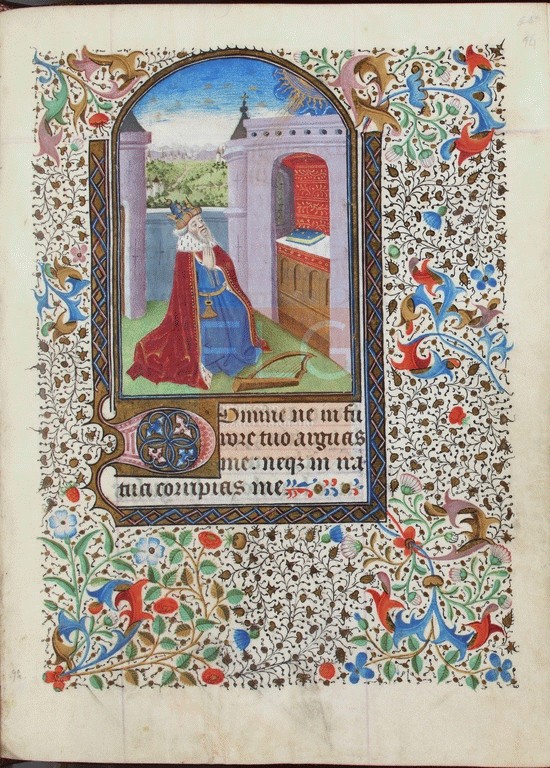 Domine ne in fu
rore tuo arguas
me: neqz in ira
tua corripias me
96